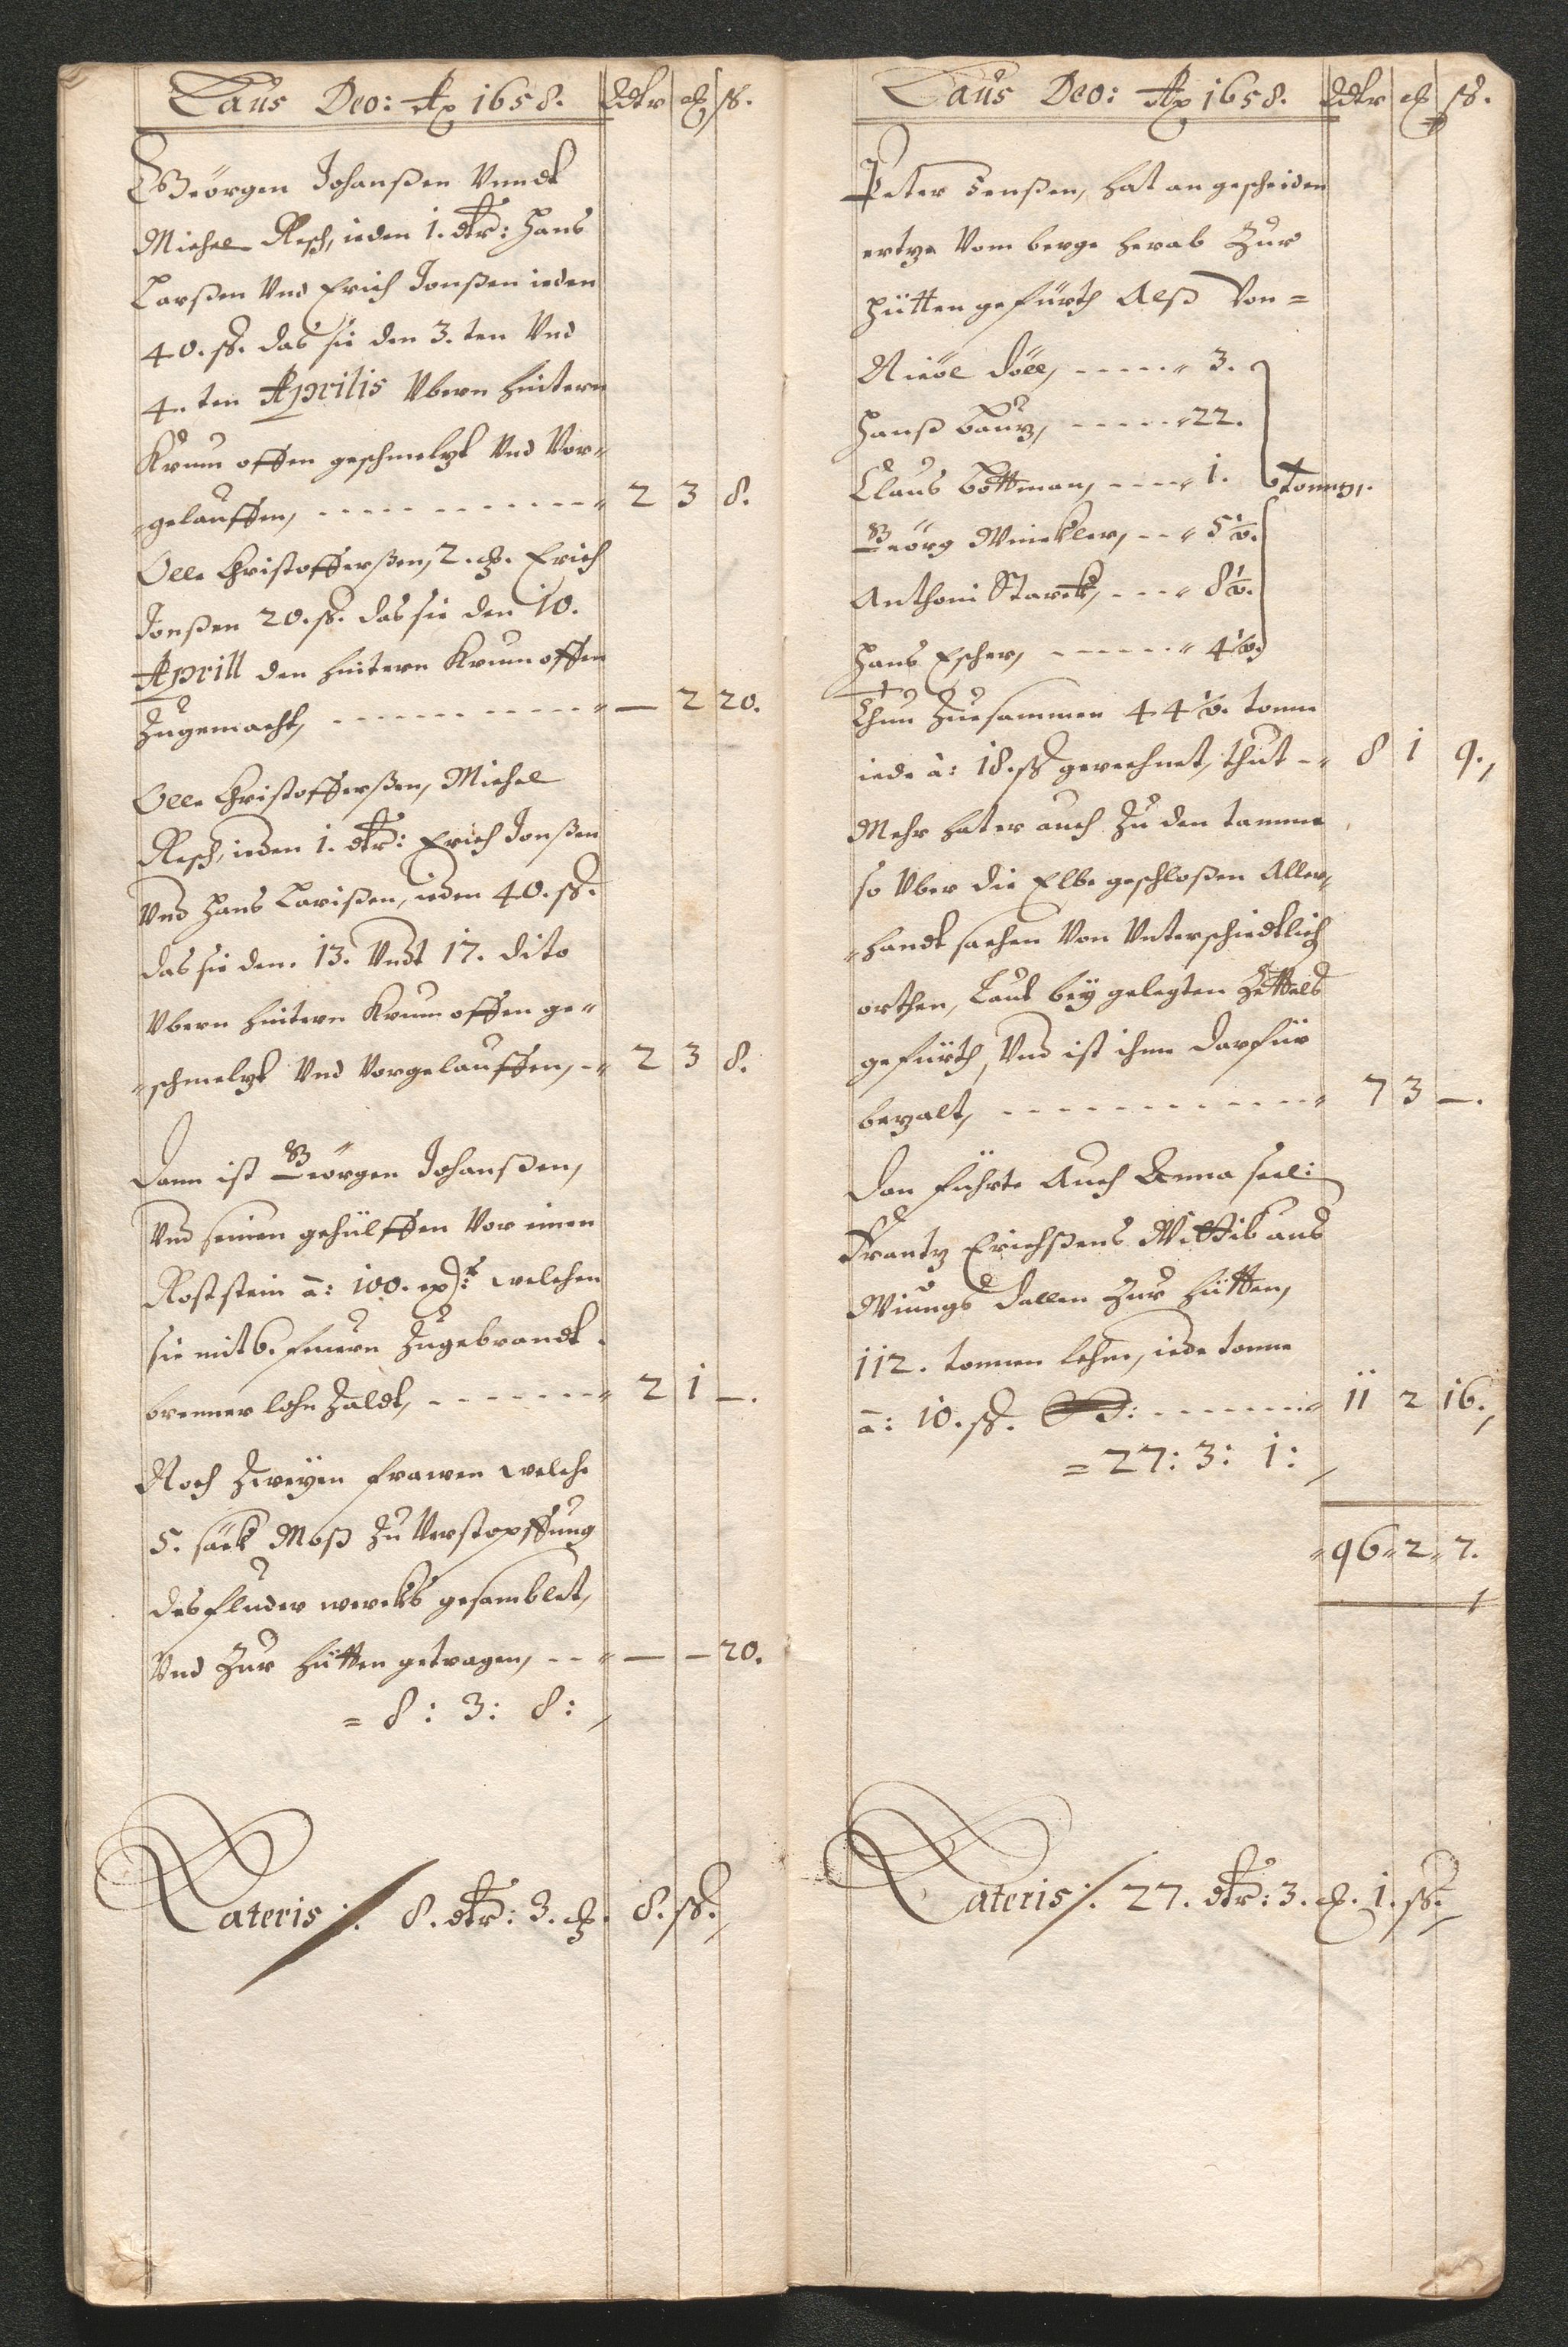 Laus Deo: Aō 1658. Rdtr ₰ ß.
Geörgen Johanßen Vnndt
Michel Resch, ieden 1. dtr: Hans
Larßen Vnd Erich Jonßen ieden
40. ß. das sie den 3. ten Vnd
4. ten Aprilis Vbern hintern
Krum offen geschmeltzt Vnd Vor-
gelauffen, 2 3 8.
Olle Christofferßen, 2. ₰. Erich
Jonßen 20. ß. das sie den 10.
Aprill den hintern Krumoffen
Zugemacht, — 2 20.
Olle Christofferßen, Michel
Resch, ieden 1. dtr: Erich Jonßen
Vnd Hans Larißen, ieden 40. ß.
das sie den. 13. Vndt 17. dito
Vbern hintern Krum offen ge-
schmeltzt Vnd Vorgelauffen, 2 3 8.
Dann ist Geörgen Johanßen,
Vnd seinen gehülffen Vor einen
Roststein à: 100. welchen
sie mit 6. feuern Zugebrandt
brenner lohn Zaldt, 2 1 —.
Noch Zweÿen frawen welche
5. säck Moß Zu Verstopffung
des fluder wercks gesamblet,
Vnd Zur hütten getragen, — — 20.
= 8: 3: 8:
Lateris:/. 8. dtr: 3. ₰. 8. ß.
Laus Deo: Aō 1658. Rdtr ₰ ß.
Peter Jenßen, hat an gescheiden
ertze Vom berge herab Zur
Hütten gefürth Alß Von =
Nicöl Döll, 3.
Hanß Bautz, 22.
Claus Bottman, 1. Tonnen.
Geörg Winckler, 5½.
Anthoni Starck, 8½.
Hans Escher, 4½.
Thun Zuesammen 44½. tonne
iede à: 18. ß gerechnet, thut 8 1 9.
Mehr hat er auch Zu den tamme
so Vber die Elbe geschloßen Aller-
handt sachen Von Vnterschiedtlich
orthen, Laut beÿ gelegten Zettels
gefürth, Vnd ist ihme darfür
bezalt, 7 3 —.
Dan führte Auch Anna seel:
Frantz Erichßens Wittib aus
Wiungs dallen Zur hütten,
112. tonnen lehm, iede tonne
à: 10. ß. 11 2 16.
= 27: 3: 1:
96 2 7.
Lateris:/. 27. dtr: 3. ₰. 1. ß.